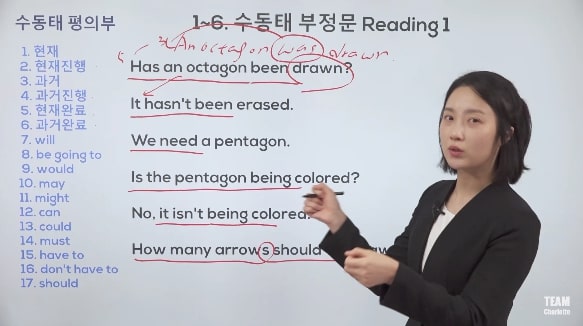 수동태 평의부
1. 현재
2. 현재진행
3. 과거
4. 과거진행
5. 현재완료
6. 과거완료
7. will
8. be going to
9. would
10. may
11. might
12. can
13. could
14. must
15. have to
16. don't have to
17. should
1~6. 수동태 부정문 Reading 1
An octagon was drawn.
Has an octagon been drawn?
It hasn't been erased.
We need a pentagon.
Is the pentagon being colored?
No, it isn't being colored.
How many arrows should
TEAM
Charlotte